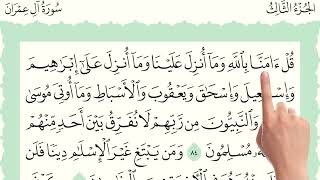 الجُزْءُ الثَّالِثُ سُورَةُ آلِ عِمْرَانَ
قُلْ ءَامَنَّا بِٱللَّهِ وَمَآ أُنزِلَ عَلَيْنَا وَمَآ أُنزِلَ عَلَىٰٓ إِبْرَٰهِيمَ
وَإِسْمَٰعِيلَ وَإِسْحَٰقَ وَيَعْقُوبَ وَٱلْأَسْبَاطِ وَمَآ أُوتِيَ مُوسَىٰ
وَٱلنَّبِيُّونَ مِن رَّبِّهِمْ لَا نُفَرِّقُ بَيْنَ أَحَدٍ مِّنْهُمْ
مُسْلِمُونَ ٨٤ وَمَن يَبْتَغِ غَيْرَ ٱلْإِسْلَٰمِ دِينًا فَلَن